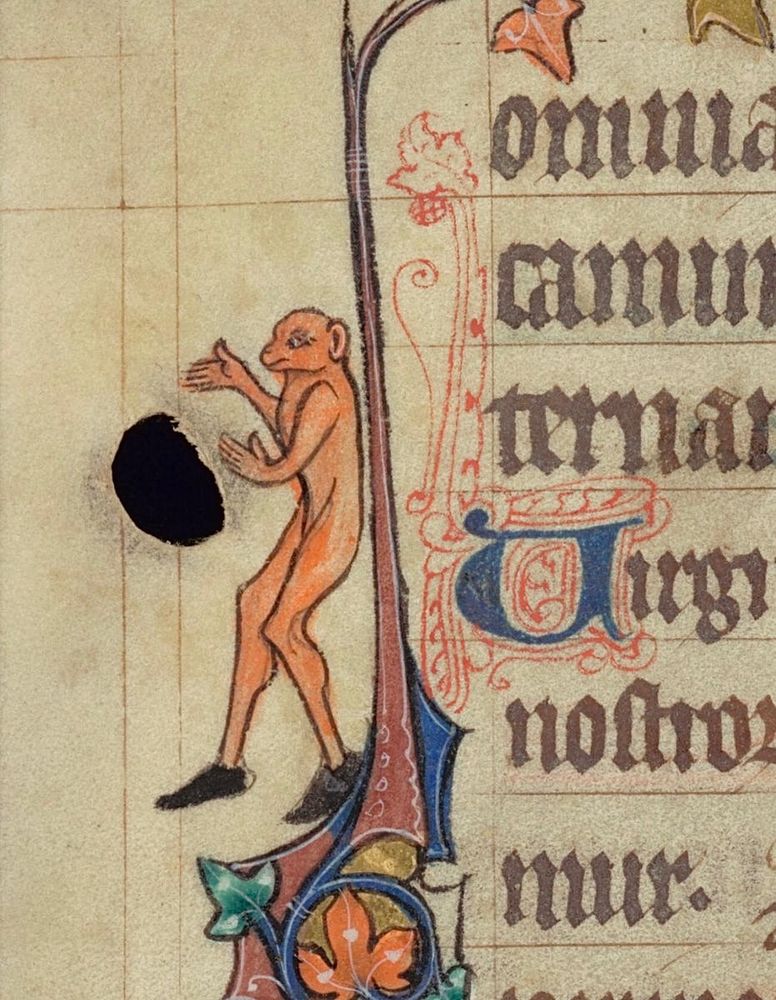 omnia
camur
ternar
Virgi
nostror
mur.